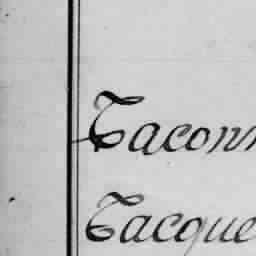 Taconn
Tacque